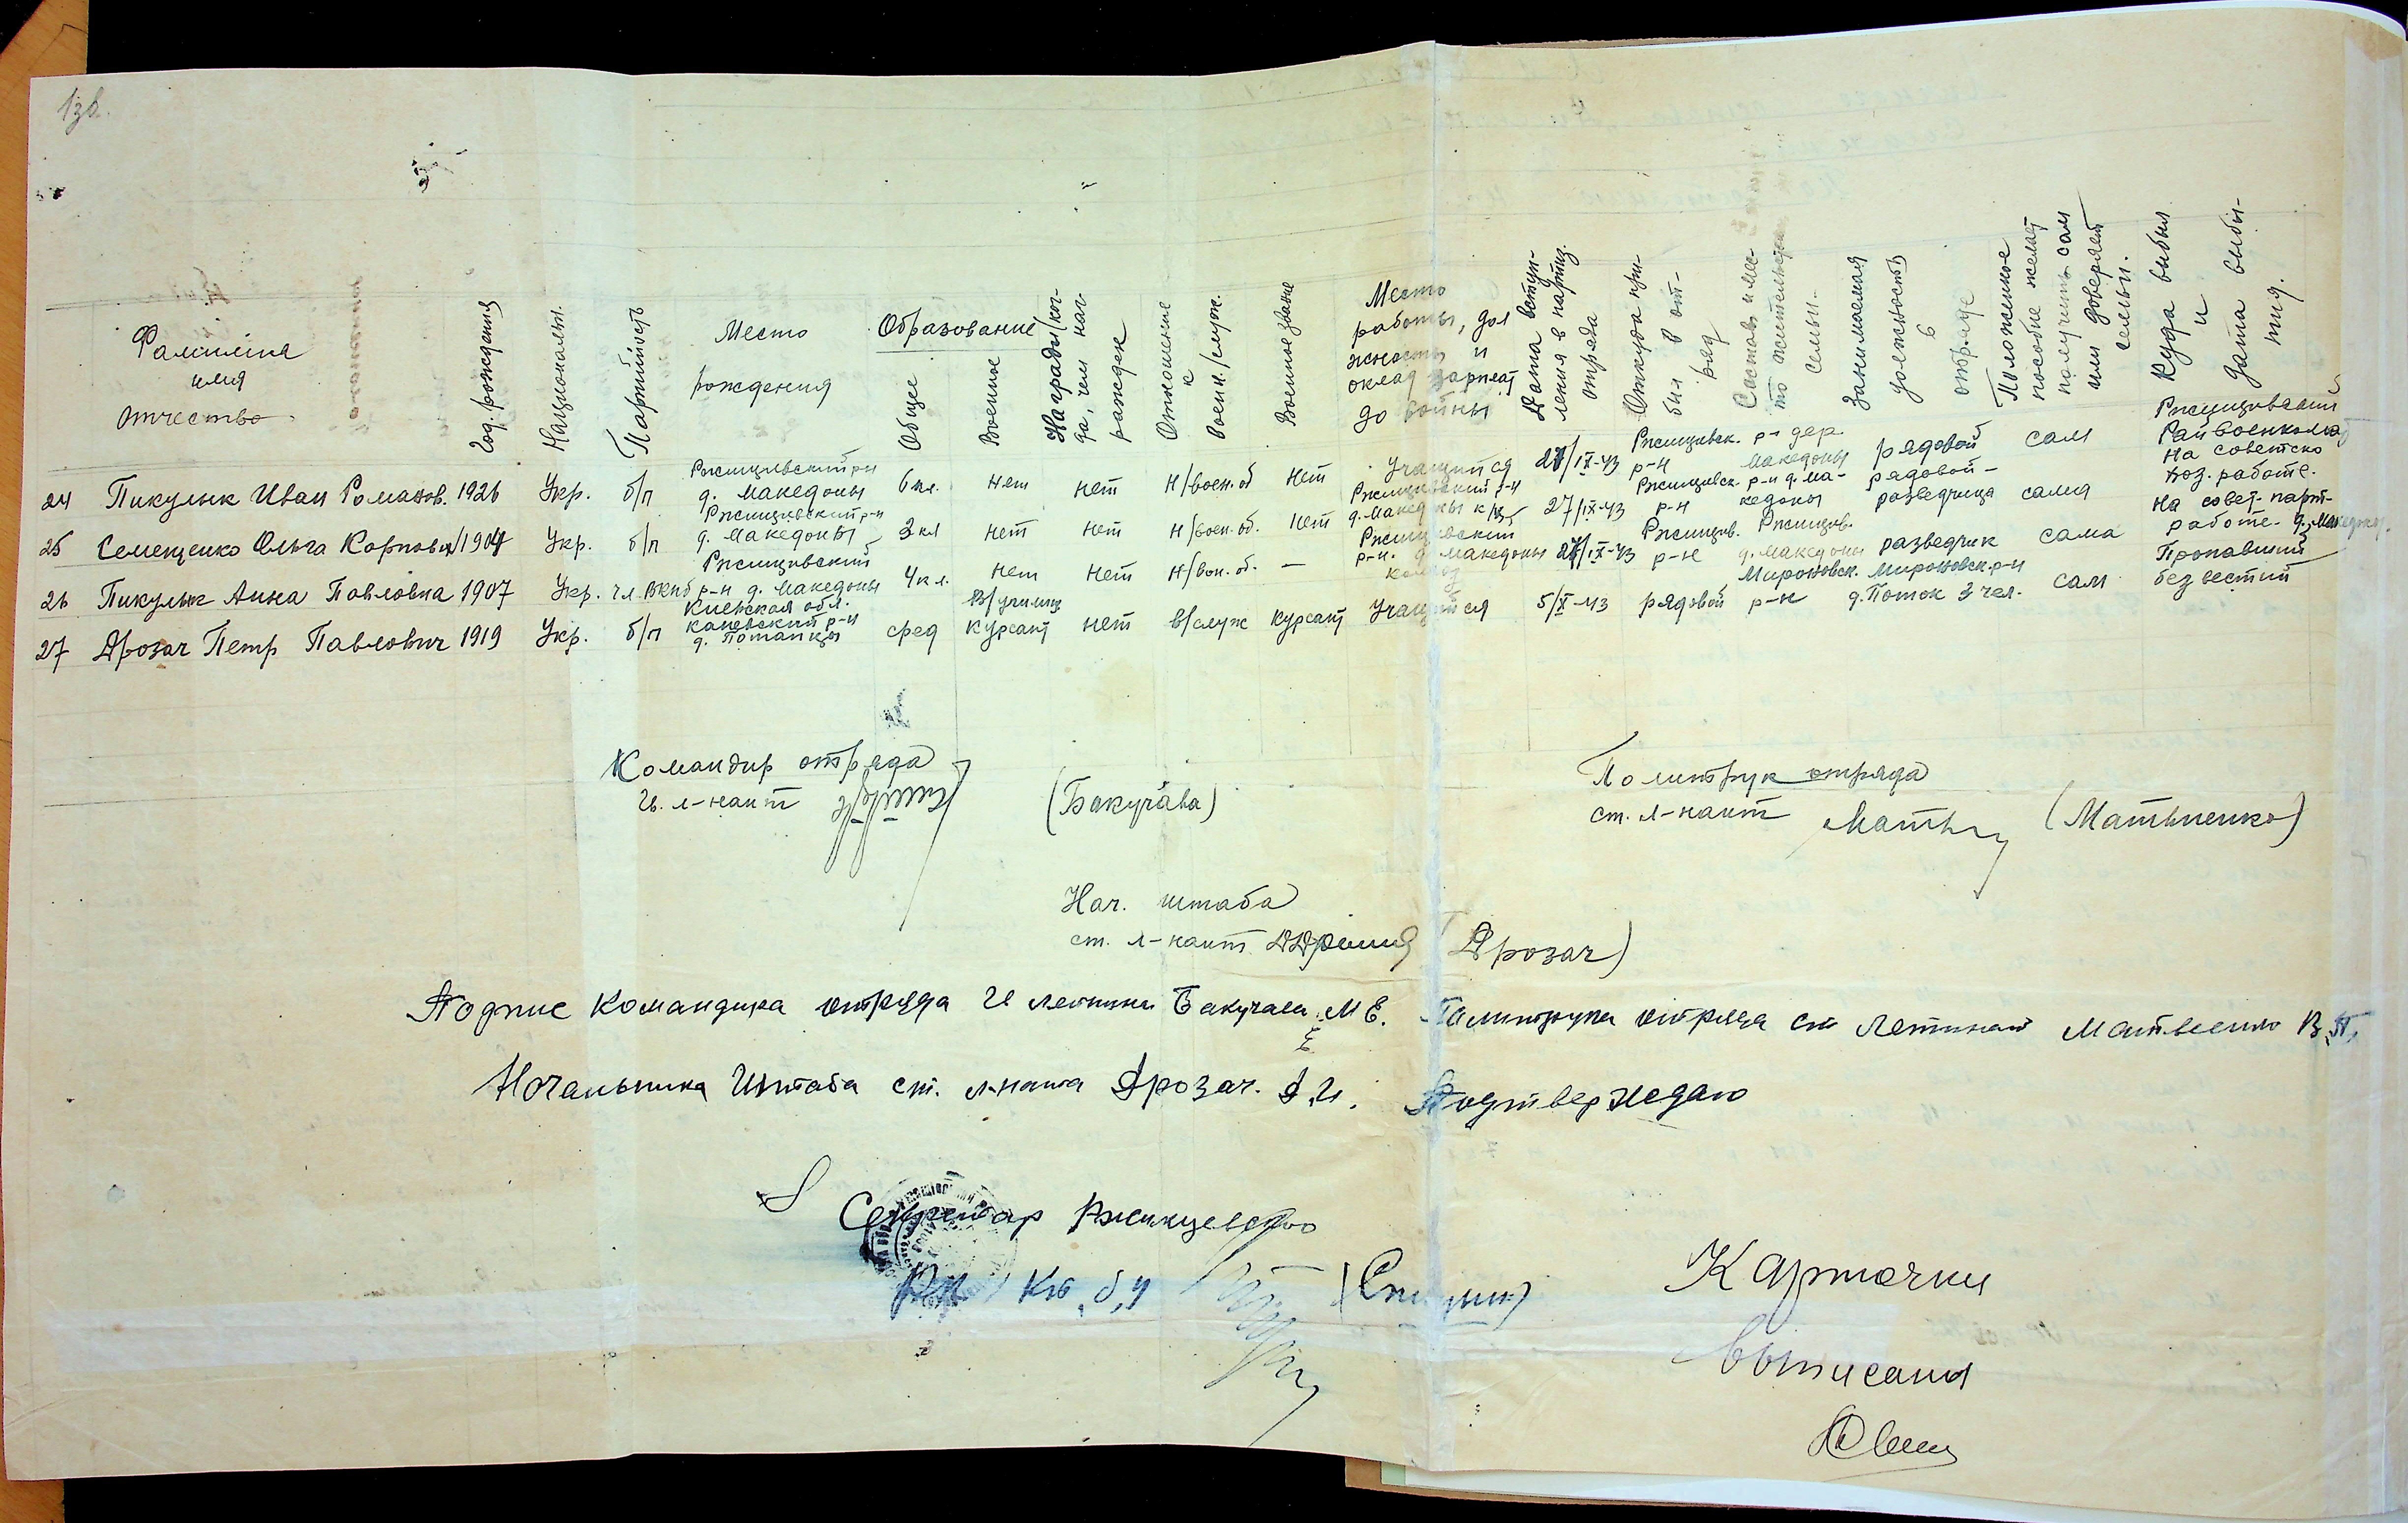 13об.
Фамилия
имя
отчество
Год. рождения
Национальн.
Партийность
Место
рождения
Образование
Общее
Военные
Награды/ког-
да, чем наг-
ражден
Отношение
к
воен./служ.
Военное звание
Место
работы, дол
жность и
оклад зарплат
до войны
Дата вступ-
ления в партиз.
отряда
Откуда при-
был в от-
ряд
Состав и мес-
то жительства
семьи.
Занимаемая
должность
в
отряде
Положенное
пособие желает
получить сам
или доверяет
семьи.
Куда выбыл
и
дата выбы-
тия.
24 Пикулык Иван Романов. 1926 Укр. б/п Ржищивский р-н д. Македоны 6 кл. нет нет н/воен.об нет Учащийся 27/IX-43 Ржищивск. р-н р-н дер. Македоны рядовой сам Ржищивский Райвоенкомат
25 Семещенко Ольга Карповна 1904 Укр. б/п Ржищивский р-н д. Македоны 3 кл нет нет н/воен.об. нет Ржищивский р-н д. Македоны к/з 27/IX-43 Ржищивск. р-н р-н д. Македоны рядовой-разведчица сама на советско хоз. работе.
26 Пикулык Анна Павловна 1907 Укр. чл. ВКпб Ржищивский р-н д. Македоны 4 кл. нет нет н/вон.об. — Ржищевский р-н. д. Македоны колхоз 27/IX-43 Ржищив. р-н Ржищив. д. Македоны разведчик сама на совет-парт-работе. д. Македоны.
27 Дрозач Петр Павлович 1919 Укр. б/п Киевская обл. каневский р-н д. Потапцы сред В/училищ курсант нет в/служ курсант Учащийся 5/X-43 рядовой Мироновск. р-н Мироновск. р-н д. Поток 3 чел. сам Пропавший без вестий
Командир отряда
л-нант (Бакучава)
Политрук отряда
ст. л-нант Матв (Матвиенко)
Нач. штаба
ст. л-нант (Дрозач)
Подпис командира отряда Бакучава М Е. Политрука отряда ст Летинант Матвеенко В.П.
Начальника Штаба ст. л-нанта Дрозач. Подтверждаю
Секретар Ржищевского
РК КП б,У
Карточки
выписаны